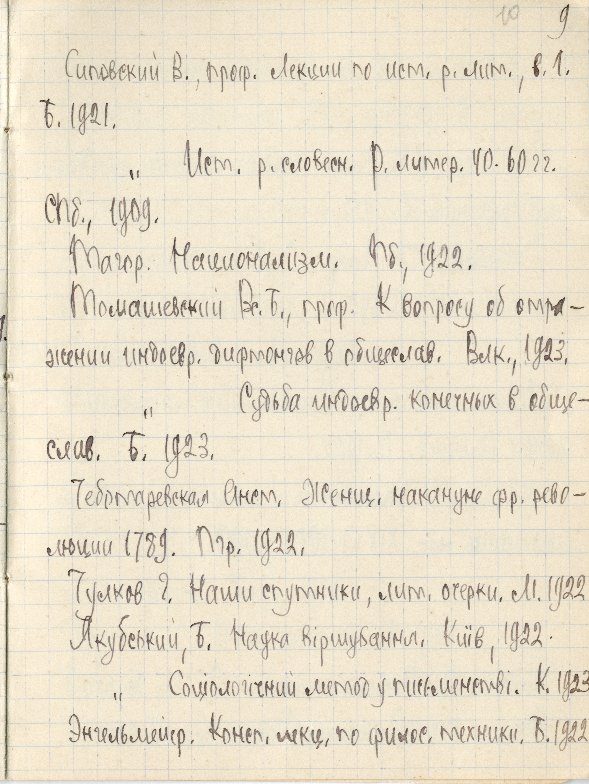 10 9
Сиповский В., проф. Лекции по ист. р. лит., в. 1.
Б. 1921.
„ Ист. р. словесн. Р. литер. 40-60 гг.
СПб., 1909.
Тагор. Национализм. Пб., 1922.
Томашевский Вс. Б., проф. К вопросу об отра-
жении индоевр. дифтонгов в общеслав. Влк., 1923.
„ Судьба индоевр. конечных в обще-
слав. Б. 1923.
Чеботаревская Анст. Женщ. накануне фр. рево-
люции 1789. Пгр. 1922.
Чулков Г. Наши спутники, лит. очерки. М. 1922
Якубський, Б. Наука віршування. Київ, 1922.
„ Соціологічний метод у письменстві. К. 1923
Энгельмейер. Консп. лекц. по филос. техники. Б. 1922